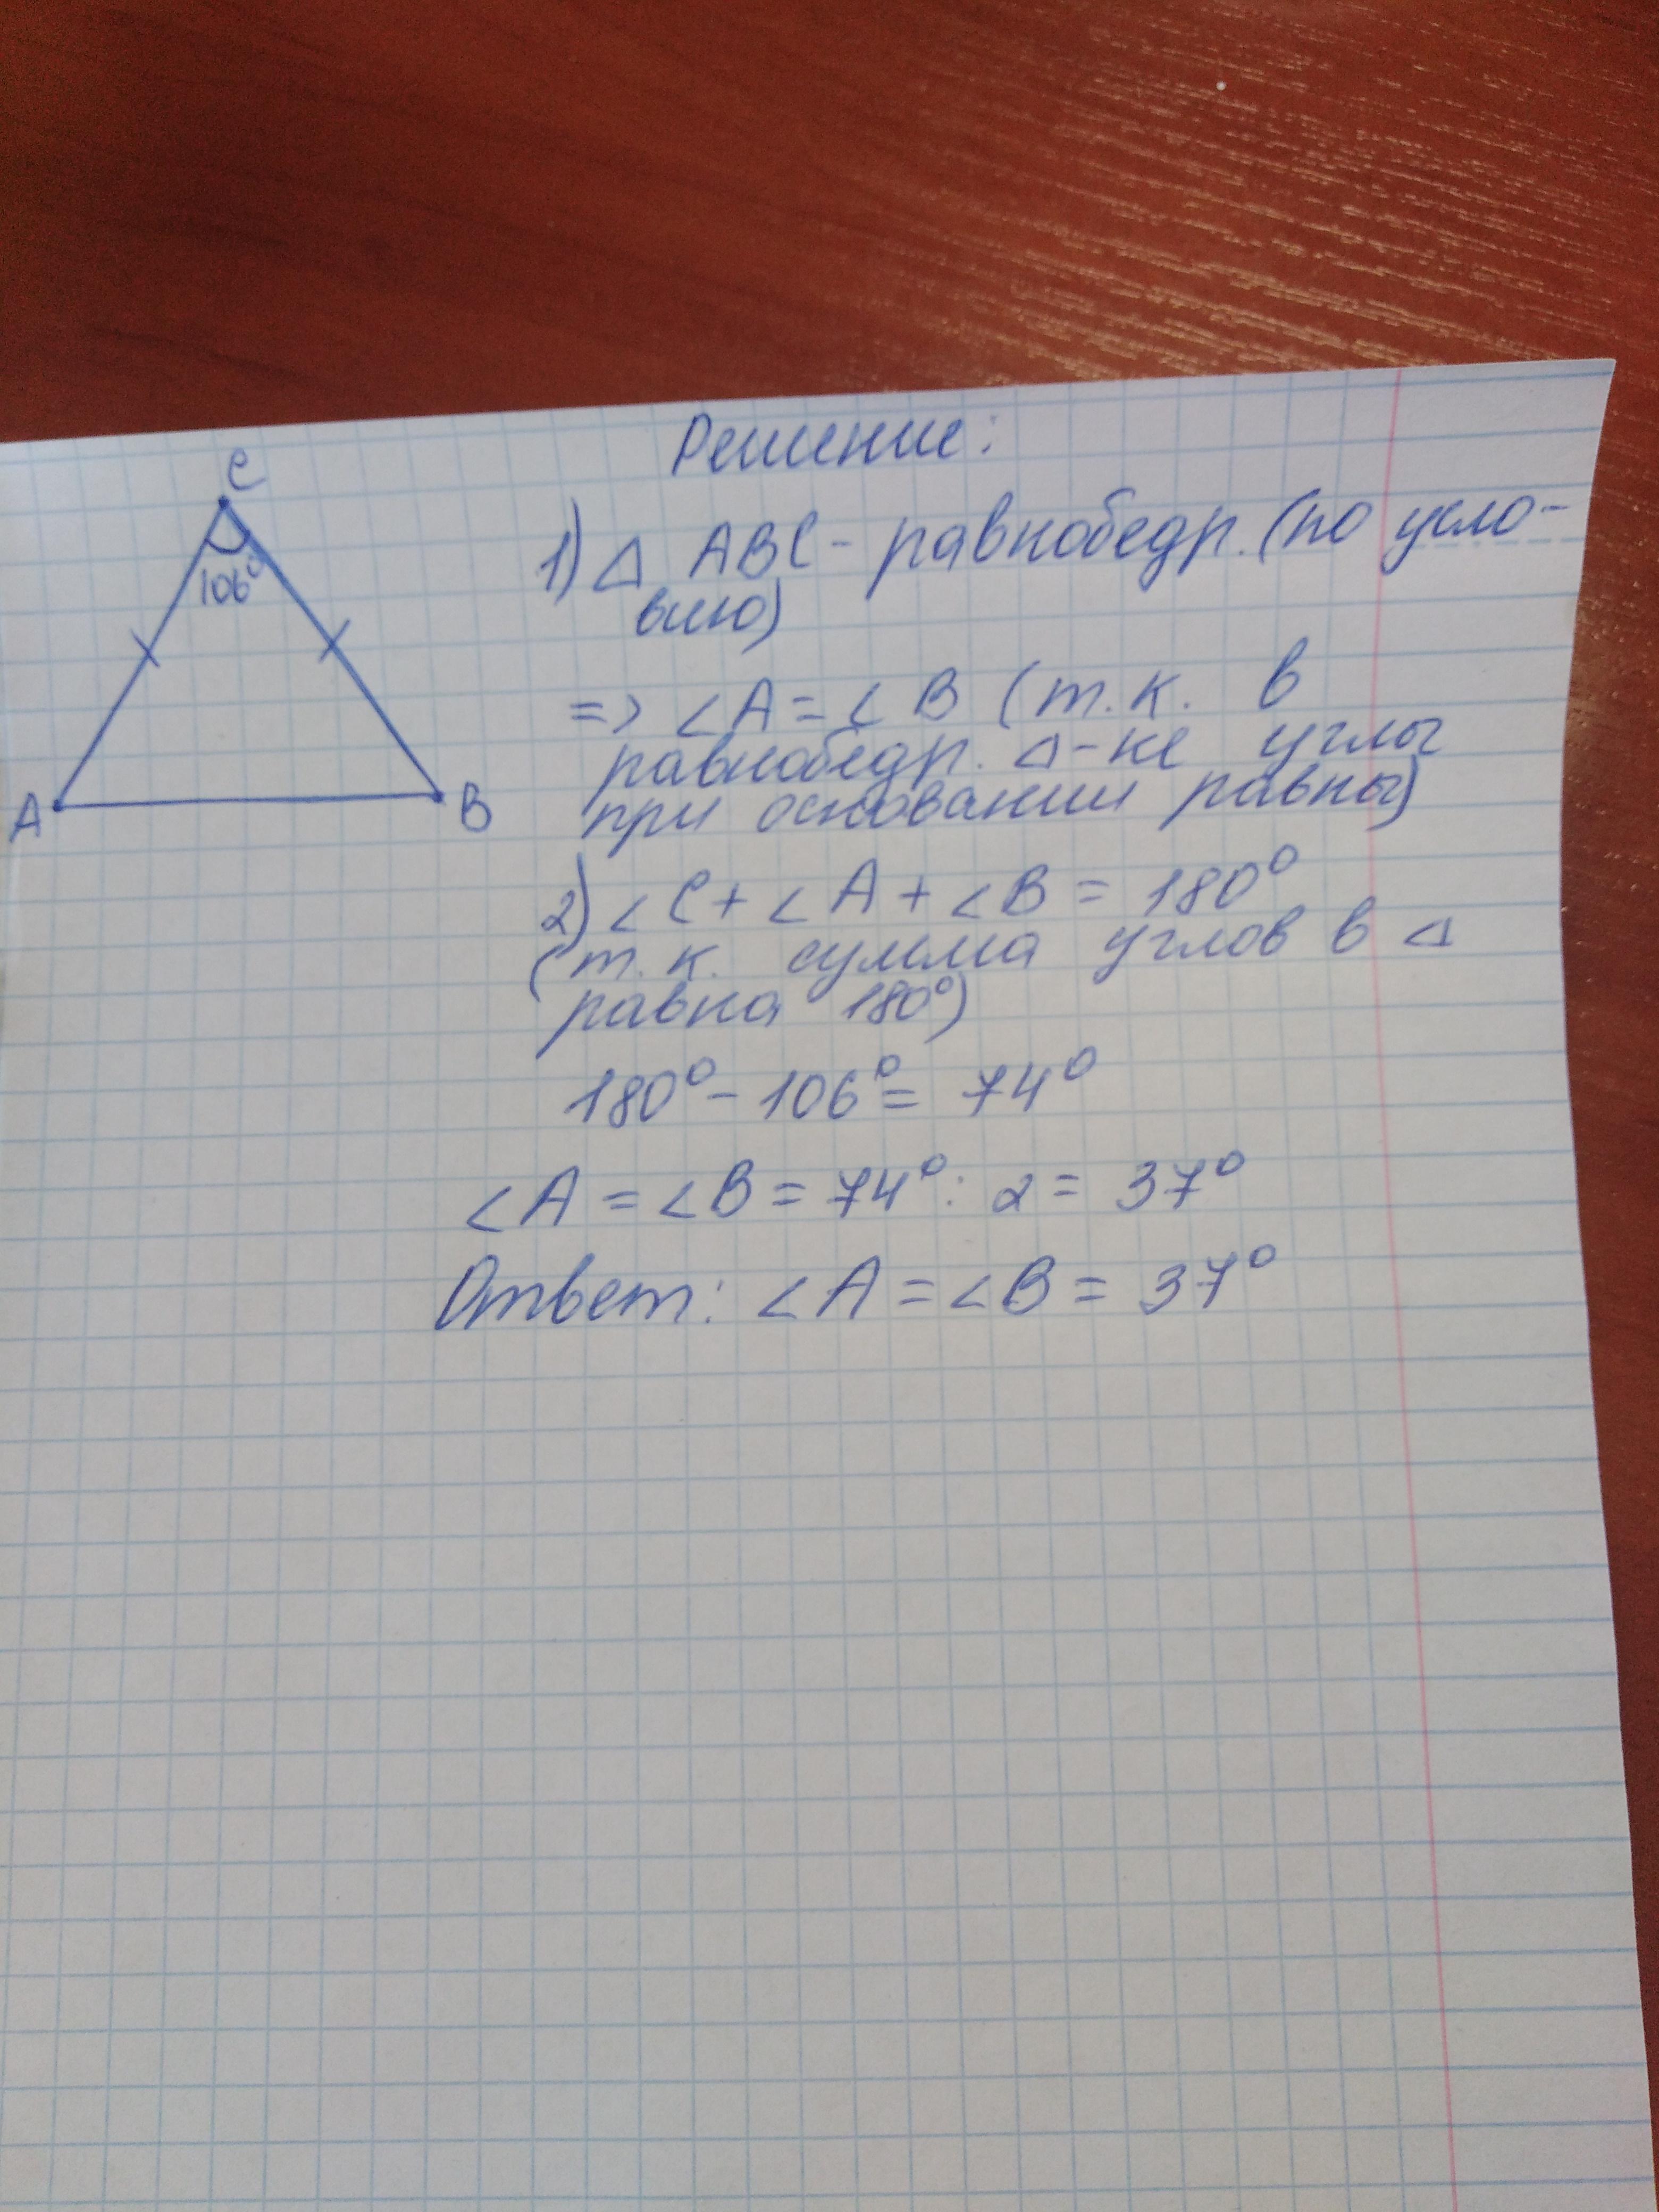 Решение:
C
1) △ ABC - равнобедр. (по усло-
106°
вию)
=> ∠A = ∠B (т.к. в
равнобедр. △-ке углы
A
B
при основании равны)
2) ∠C + ∠A + ∠B = 180°
(т.к. сумма углов в △
равна 180°)
180° - 106° = 74°
∠A = ∠B = 74° : 2 = 37°
Ответ: ∠A = ∠B = 37°